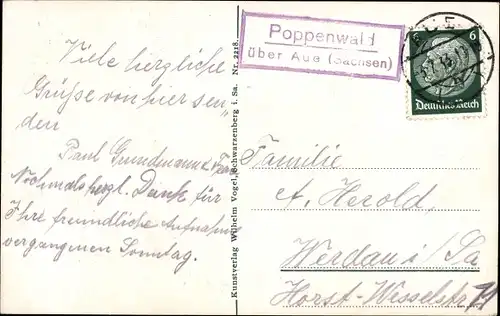 Viele herzliche
Grüße von hier sen
den
Paul Grundmann u. Frau
Nochmals herzl. Dank für
Ihre freundliche Aufnahme
vergangenen Sonntag.
Kunstverlag Wilhelm Vogel, Schwarzenberg i. Sa. Nr. 2218.
Poppenwald
über Aue (Sachsen)
6 6
Deutsches Reich
Familie
A. Herold,
Werdau i/Sa
Horst-Wesselstr